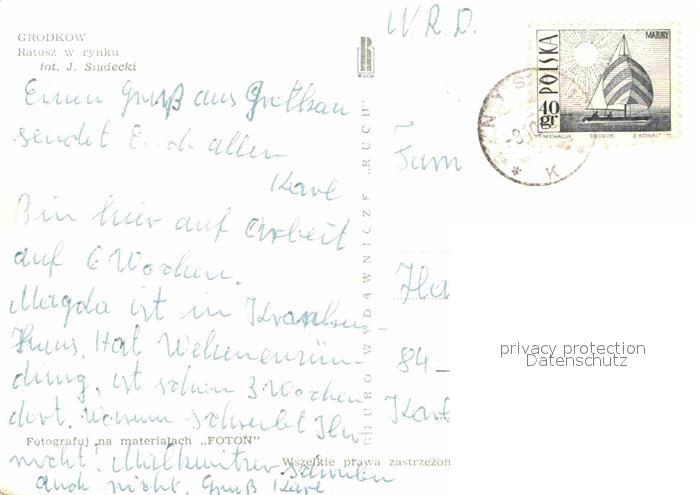 GRODKÓW
Ratusz w rynku
fot. J. Siudecki
Einen Gruß aus Grotkau
sendet Euch allen
Karl
Bin hier auf Arbeit
auf 6 Wochen.
Magda ist in Kranken
Haus. Hat Wehenenzün-
dung, ist schon 3 Wochen
dort. Warum schreibt Ihr
nicht! schreiben
auch nicht. Gruß Karl.
Fotografuj na materiałach „FOTON"
Wszelkie prawa zastrzeżon
BIURO WYDAWNICZE „RUCH"
RUCH
N.R.D.
Fam
Ha
84-
Karl
POLSKA
MAZURY
40
gr
T. MICHALUK
Z. KOWAL
NYS
K
privacy protection
Datenschutz